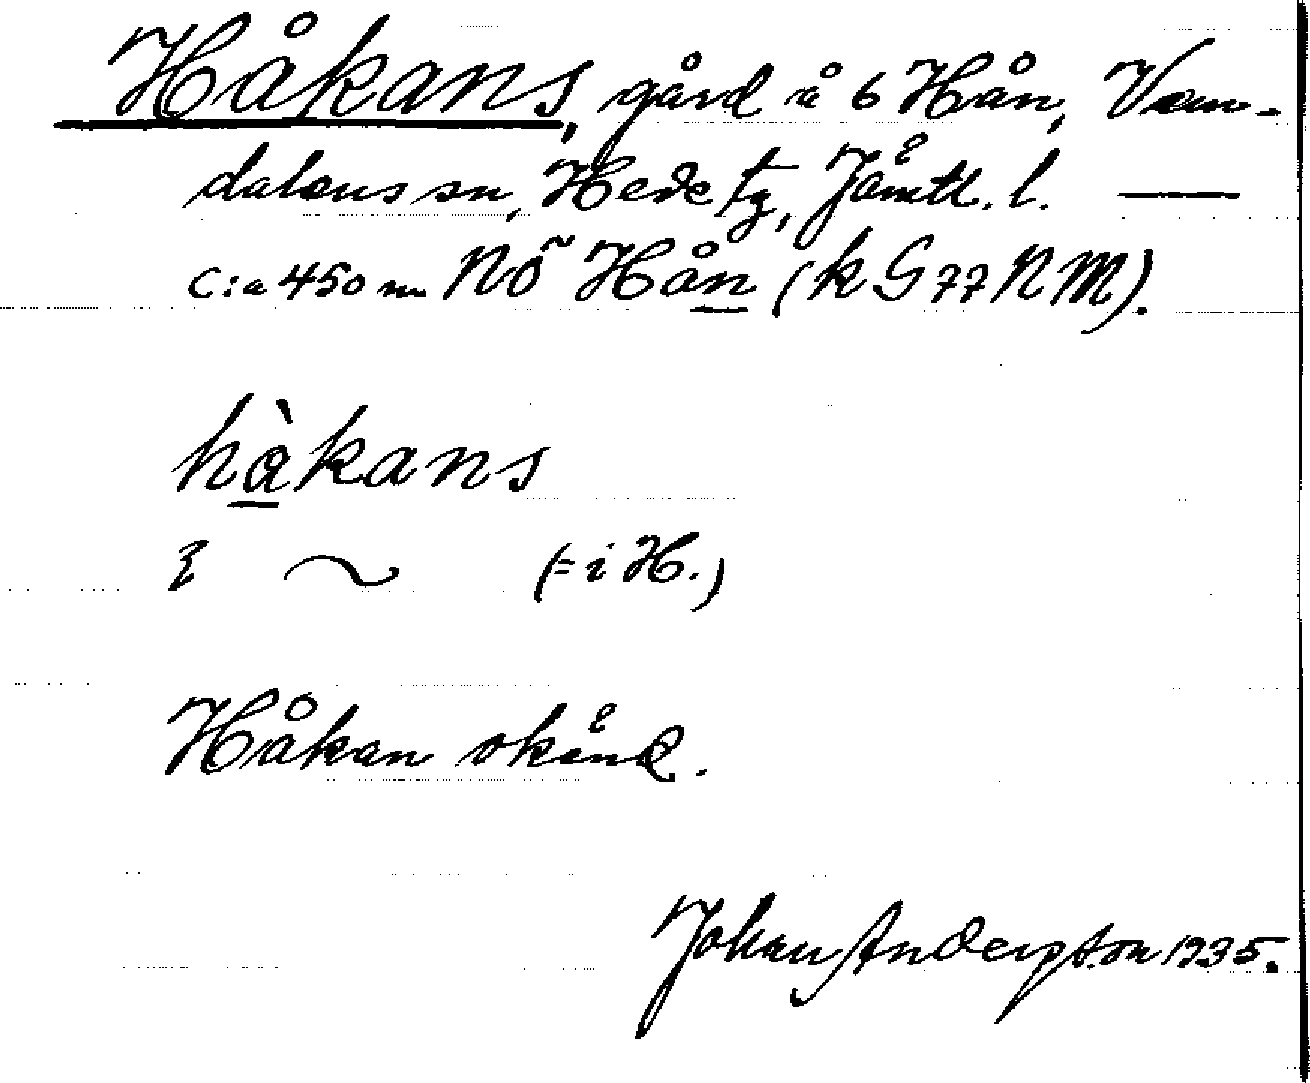 Håkans, gård å 6 Hån, Vem-
dalens sn, Hede tg, Jämtl. l. —
c:a 450 m NÖ Hån (k G 77 NM).
hàkans
ı ~ (= i H.)
Håkan okänd.
Johan Anderson 1935.